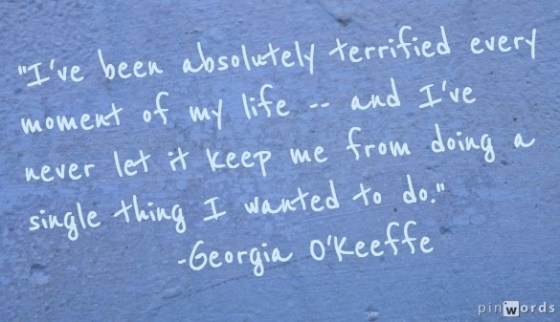 "I've been absolutely terrified every
moment of my life -- and I've
never let it keep me from doing a
single thing I wanted to do."
-Georgia O'Keeffe
pinwords